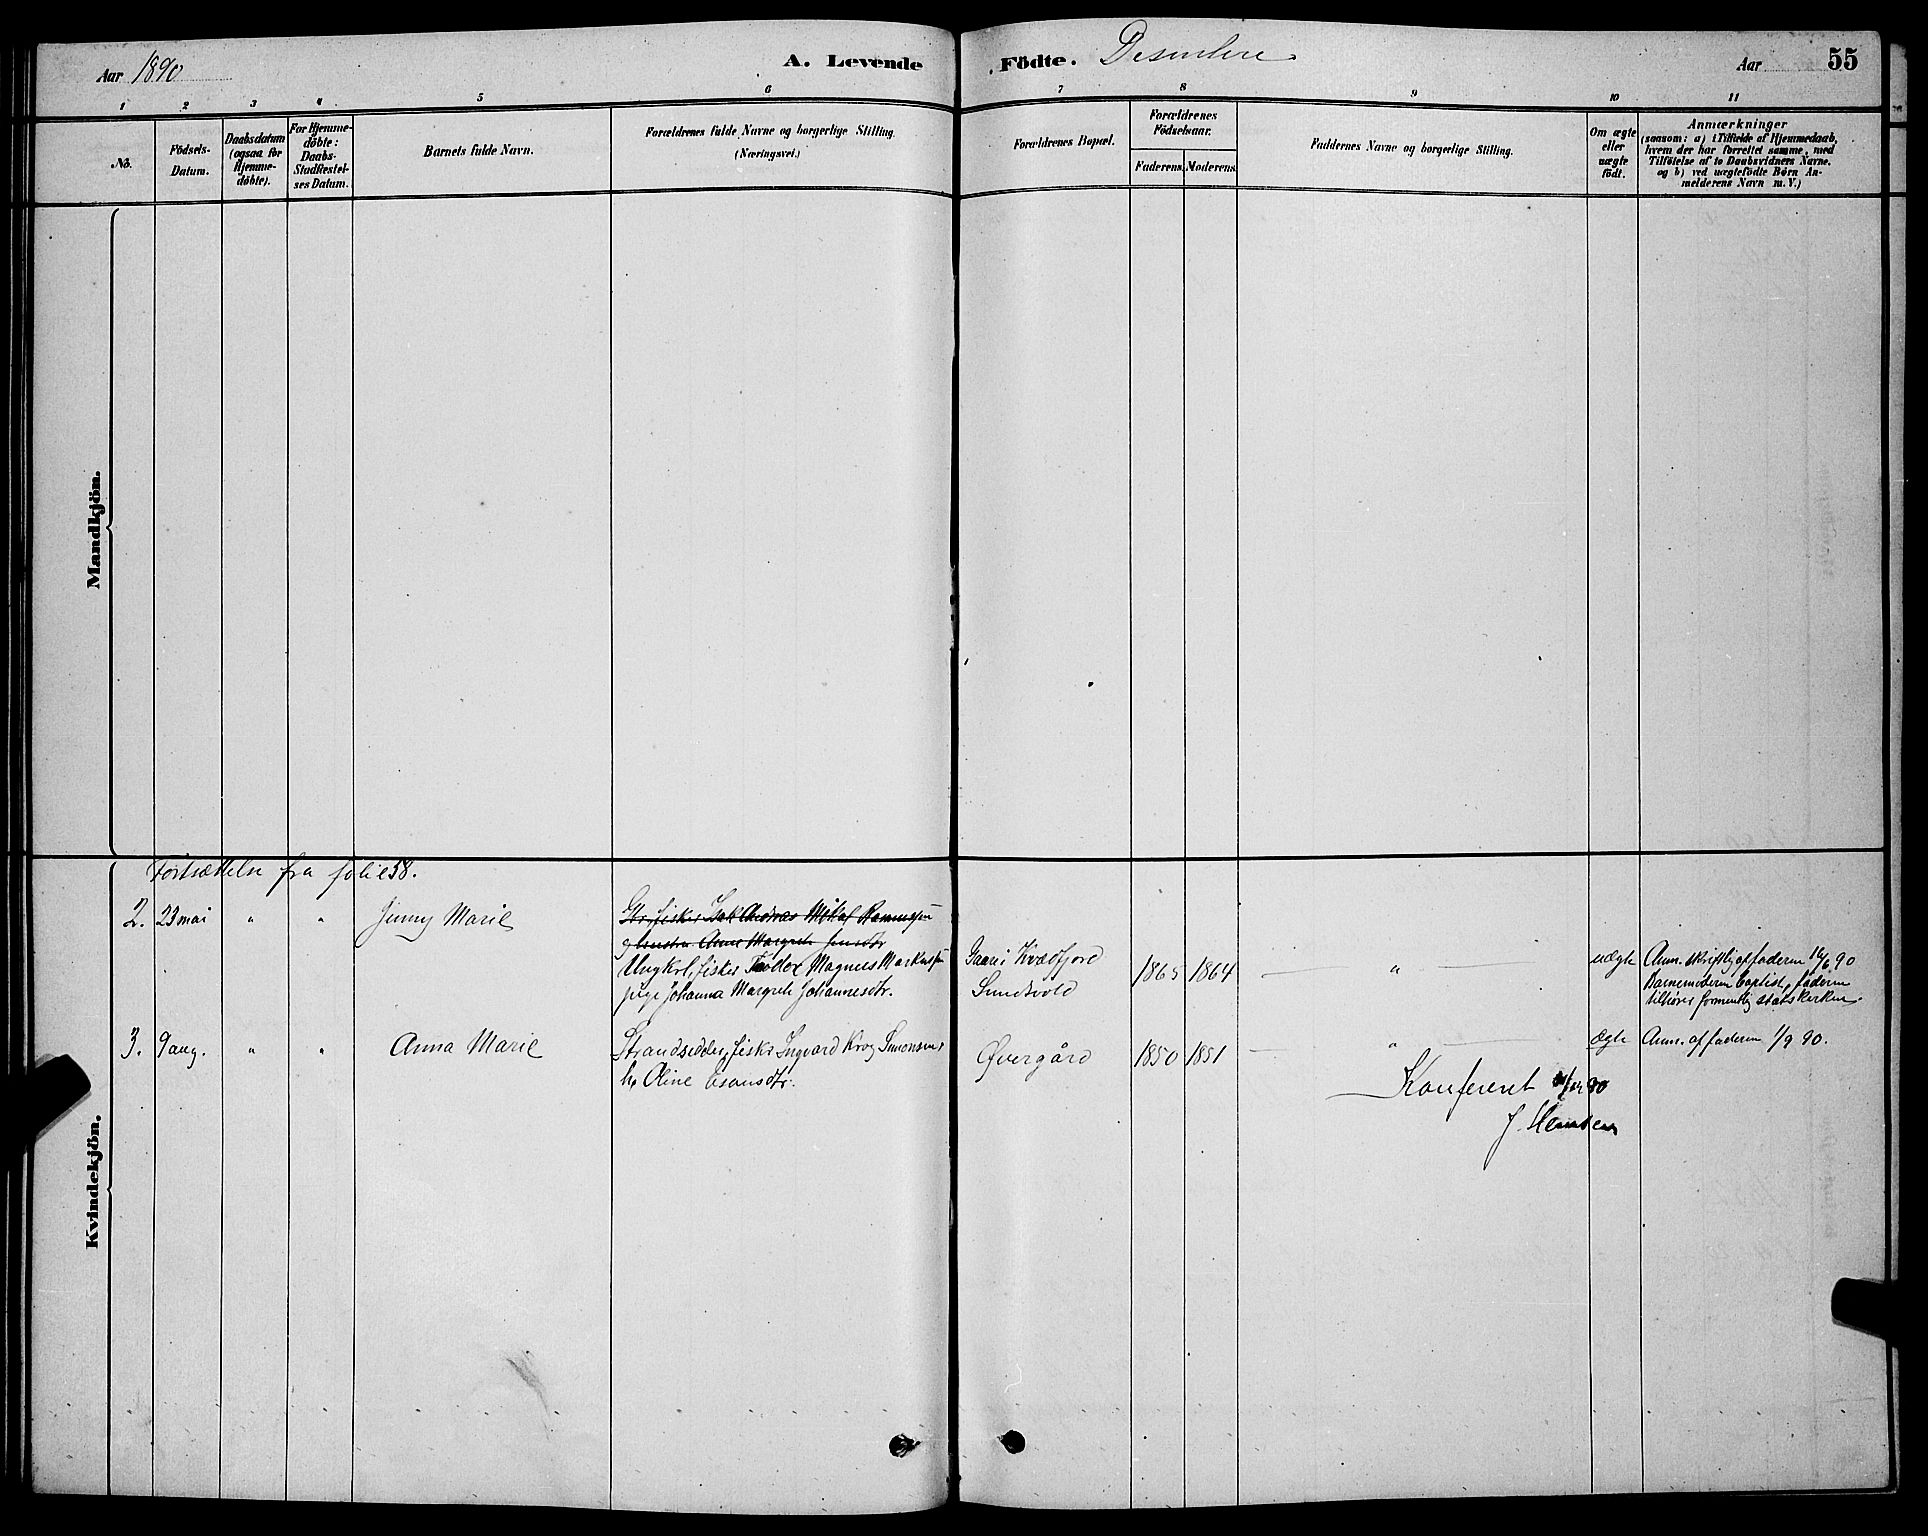 Aar 1890
A. Levende Födte.
Aar
55
1 2 3 4 5 6 7 8 9 10 11
No.
Födsels-Datum.
Daabsdatum (ogsaa for Hjemme-döbte).
For Hjemme-döbte: Daabs-Stadfæstel-ses Datum.
Barnets fulde Navn.
Forældrenes fulde Navne og borgerlige Stilling.
(Næringsvei.)
Forældrenes Bopæl.
Forældrenes Födselsaar.
Faderens. Moderens.
Faddernes Navne og borgerlige Stilling.
Om ægte eller uægte födt.
Anmærkninger
(saasom: a) i Tilfælde af Hjemmedaab,
hvem der har forrettet samme, med
Tilföielse af to Daabsvidners Navne.
og b) ved uægtefödte Börn An-
melderens Navn m. V.)
Mandkjön.
Kvindekjön.
Fortsættelse fra folie 58.
2. 23 mai " " Jenny Marie
Ungkrl, fisker Magnus Markussen
pige Johanna Margreth Johannesdtr.
Gaare i Kvædfjord
Sundsvold
1865 1864 " uægte
Anm. skriftlig af faderen
Barnemoderen baptist, faderen
tilhører formentlig statskirken.
3. 9 aug. " " Anna Marie
Strandsidder, fiskr Ingvard Krog Simonsen,
h. Oline Esansdtr.
Øvergård
1850 1851 " ægte
Anm. af faderen 1/9 90.
Konfereret